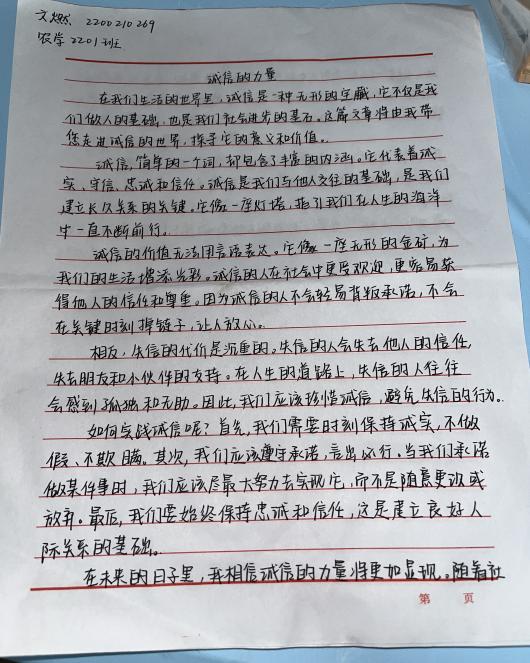 文燃 2200210269
农学2201班
诚信的力量
在我们生活的世界里,诚信是一种无形的宝藏,它不仅是我
们做人的基础,也是我们社会进步的基石。这篇文章将由我带
您走进诚信的世界,探寻它的意义和价值。
诚信,简单的一个词,却包含了丰富的内涵。它代表着诚
实、守信、忠诚和信任。诚信是我们与他人交往的基础,是我们
建立长久关系的关键。它像一座灯塔,指引我们在人生的海洋
中一直不断前行。
诚信的价值无法用言语表达。它像一座无形的金矿,为
我们的生活增添光彩。诚信的人在社会中更受欢迎,更容易获
得他人的信任和尊重。因为诚信的人不会轻易背叛承诺,不会
在关键时刻掉链子,让人放心。
相反,失信的代价是沉重的。失信的人会失去他人的信任,
失去朋友和小伙伴的支持。在人生的道路上,失信的人往往
会感到孤独和无助。因此,我们应该珍惜诚信,避免失信的行为。
如何实践诚信呢?首先,我们需要时刻保持诚实,不做
假、不欺瞒。其次,我们应该遵守承诺,言出必行。当我们承诺
做某件事时,我们应该尽最大努力去实现它,而不是随意更改或
放弃。最后,我们要始终保持忠诚和信任,这是建立良好人
际关系的基础。
在未来的日子里,我相信诚信的力量将更加显现。随着社
第 页